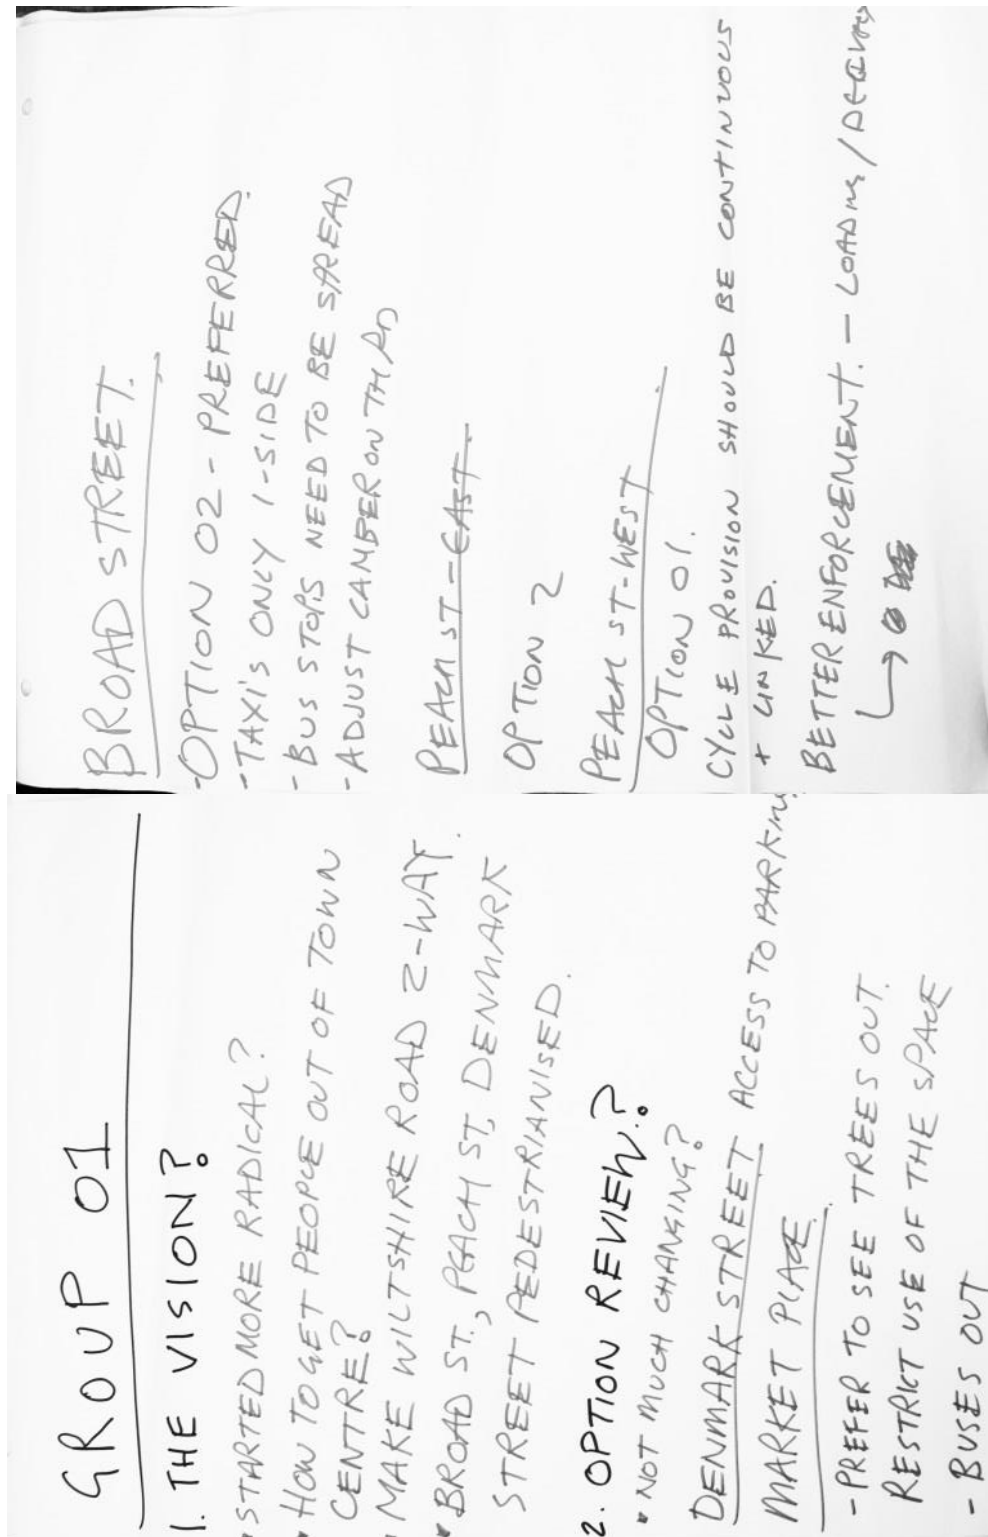 GROUP 01
1. THE VISION?
• STARTED MORE RADICAL?
• HOW TO GET PEOPLE OUT OF TOWN
CENTRE?
• MAKE WILTSHIRE ROAD 2-WAY.
• BROAD ST., PEACH ST, DENMARK
STREET PEDESTRIANISED.
2. OPTION REVIEW?
• NOT MUCH CHANGING?
DENMARK STREET ACCESS TO PARKING
MARKET PLACE.
- PREFER TO SEE TREES OUT.
RESTRICT USE OF THE SPACE
- BUSES OUT
BROAD STREET.
- OPTION 02 - PREFERRED.
- TAXI'S ONLY 1-SIDE
- BUS STOPS NEED TO BE SPREAD
- ADJUST CAMBER ON TH RD
PEACH ST-EAST.
OPTION 2
PEACH ST-WEST.
OPTION 01.
CYCLE PROVISION SHOULD BE CONTINUOUS
+ LINKED.
BETTER ENFORCEMENT. - LOADING/